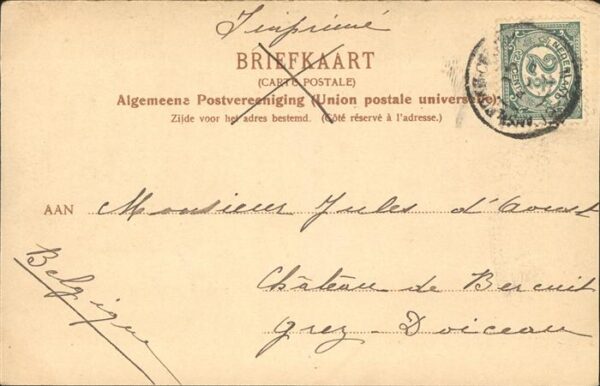 Imprimé
BRIEFKAART
(CARTE POSTALE)
Algemeene Postvereeniging (Union postale universelle).
Zijde voor het adres bestemd. (Côté réservé à l'adresse.)
NEDERLAND
2½
AAN Monsieur Jules d'Aoust
Château de Bercuit
Grez-Doiceau
Belgique